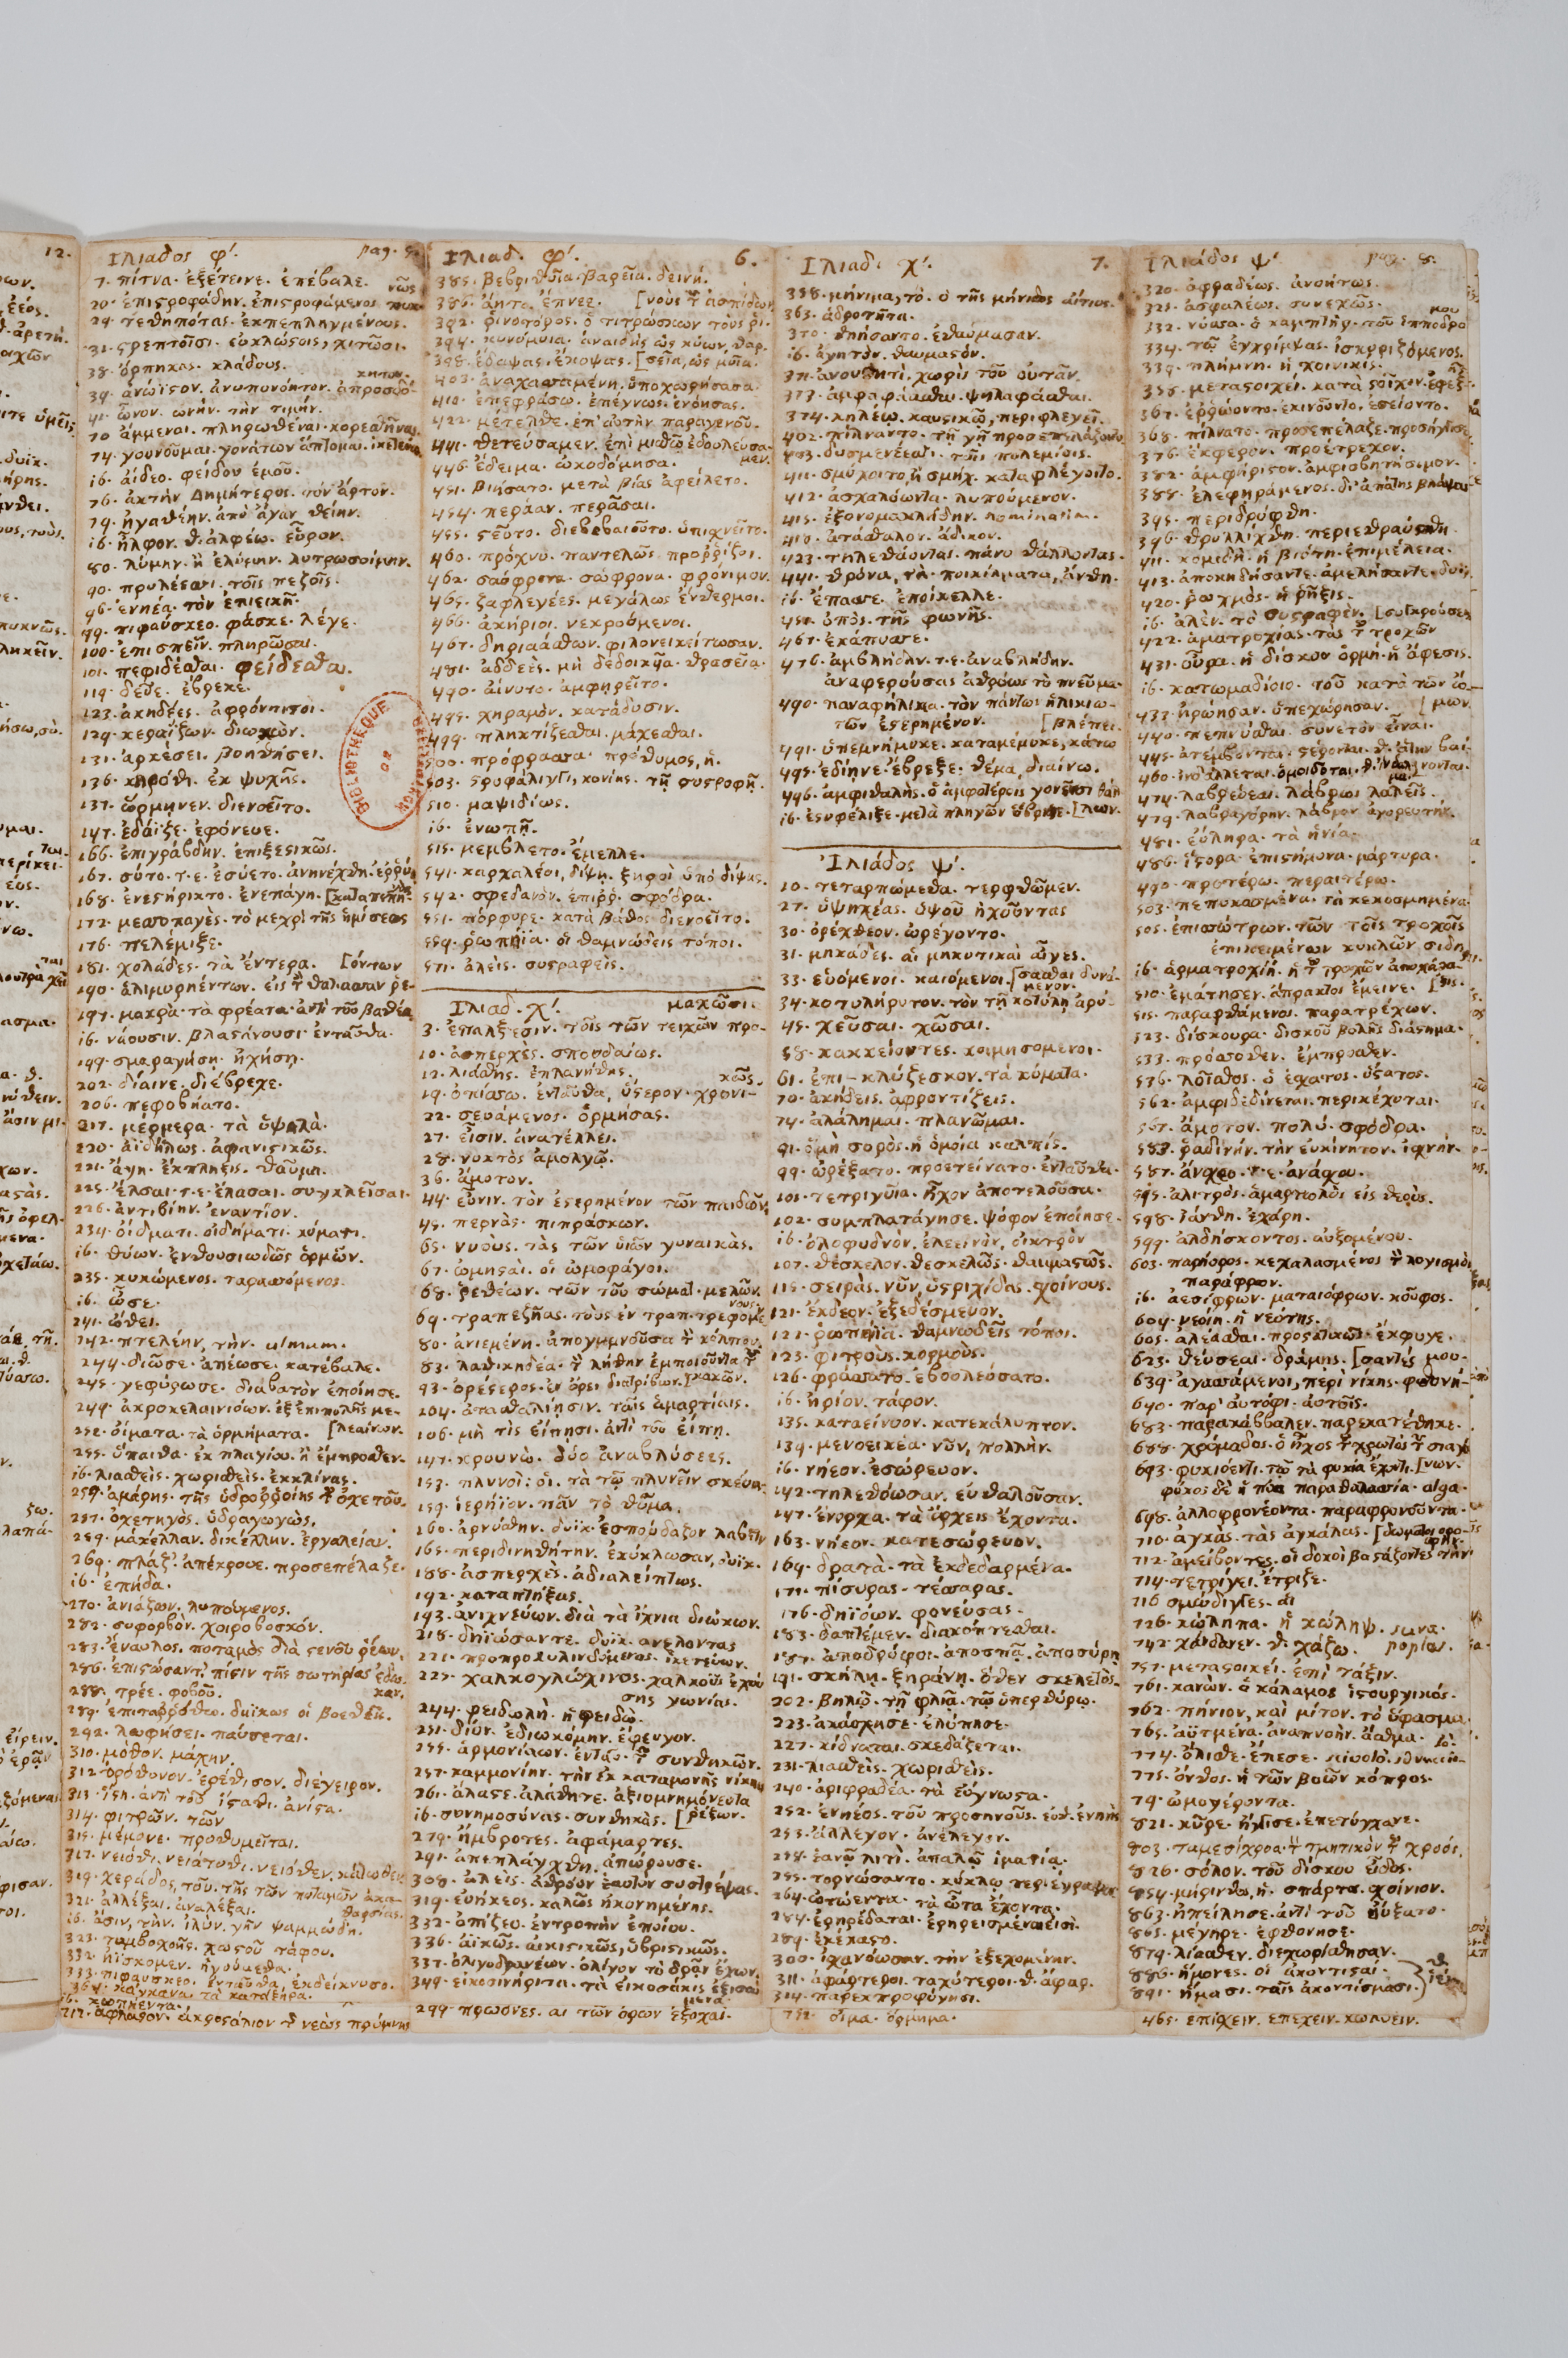 12.
Ιλιαδος φ'. pag. 5.
7. πίτνα. ἐξέτεινε. ἐπέβαλε.
20. ἐπιστροφάδην. ἐπιστροφάμενος
29. τεθηπότας. ἐκπεπληγμένους.
31. στρεπτοῖσι. εὐκλώστοις, χιτῶσι.
38. ὄρπηκας. κλάδους.
39. ἀνώϊστον. ἀνυπονόητον. ἀπροσδό-
κητον.
41. ὦνον. ὠνήν. τὴν τιμήν.
70 ἄμμεναι. πληρωθῆναι. κορεσθῆναι.
74. γουνοῦμαι. γονάτων ἅπτομαι. ἱκετεύω
ib. αἴδεο. φείδου ἐμοῦ.
76. ἀκτὴν Δημήτερος. τὸν ἄρτον.
79. ἠγαθέην. ἀπὸ ἄγαν θείην.
ib. ἦλφον. θ. ἀλφέω. εὗρον.
80. λύμην. ἢ ἐλύμην. λυτρωσοίμην.
90. πρυλέεσσι. τοῖς πεζοῖς.
96. ἐνηέα. τὸν ἐπιεικῆ.
99. πιφαύσκεο. φάσκε. λέγε.
100. ἐπισπεῖν. πληρῶσαι.
101. πεφιδέσθαι. φείδεσθαι.
119. δεῦε. ἔβρεχε.
123. ἀκηδέες. ἀφρόντιστοι.
129. κεραΐζων. διωκὼν.
131. ἀρκέσει. βοηθήσει.
136. κηρόθι. ἐκ ψυχῆς.
137. ὥρμηνεν. διενοεῖτο.
147. ἐδάϊξε. ἐφόνευε.
166. ἐπιγράβδην. ἐπιξεστικῶς.
167. σύτο. τ.ε. ἐσύετο. ἀνηνέχθη. ἐῤῥύη
168. ἐνεστήρικτο. ἐνεπάγη.
172. μεσσοπαγές. τὸ μεχρὶ τῆς ἡμίσεως
176. πελέμιξε.
181. χολάδες. τὰ ἔντερα. [όντων
190. ἁλιμυρηέντων. εἰς τ θαλασσαν ρε-
197. μακρὰ. τὰ φρέατα. ἀντὶ τοῦ βαθέα
ib. νάουσιν. βλαστάνουσι. ἐνταῦθα.
199. σμαραγήσῃ. ἠχήσῃ.
202. δίαινε. διέβρεχε.
206. πεφοβήατο.
217. μέρμερα. τὰ
220. ἀϊδήλως. ἀφανιστικῶς.
221. ἄγη. ἔκπληξις. θαῦμα.
225. ἔλσαι. τ.ε. ἔλασαι. συγκλεῖσαι.
226. ἀντιβίην. ἐναντίον.
234. οἴδματι. οἰδήματι. κύματι.
ib. θύων. ἐνθουσιωδῶς ὁρμῶν.
235. κυκώμενος. ταρασσόμενος.
ib. ὦσε.
241. ὤθει.
242. πτελέην, τὴν. ulmum.
244. διῶσε. ἀπέωσε. κατέβαλε.
245. γεφύρωσε. διαβατὸν ἐποίησε.
249. ἀκροκελαινιόων. ἐξ ἐπιπολῆς με-
252. οἴματα. τὰ ὁρμήματα. [λεαίνων.
255. ὕπαιθα. ἐκ πλαγίου. ἢ ἔμπροσθεν.
ib. λιασθείς. χωρισθεὶς. ἐκκλίνας.
259. ἀμάρης. τῆς ὑδροῤῥοίης τ ὀχετοῦ.
257. ὀχετηγός. ὑδραγωγὼς,
259. μάκελλαν. δικέλλην. ἐργαλεῖον.
269. πλάζ'. ἀπέκρουε. προσεπέλαζε.
ib. ἐπήδα.
270. ἀνιάζων. λυπούμενος.
282. συφορβὸν. χοιροβοσκόν.
283. ἔναυλος. ποταμὸς διὰ στενοῦ ῥέων.
286. ἐπιστώσαντ'. πίστιν τῆς σωτηρίας ἔδω-
καν.
288. τρέε. φοβοῦ.
289. ἐπιταῤῥόθω. δυϊκως οἱ βοεθέι.
292. λωφήσει. παύσεται.
310. μόθον. μάχην.
312. ὀρόθυνον. ἐρέθισον. διέγειρον.
313. ἵστη. ἀντὶ τοῦ ἵσταθι. ἀνίστα.
314. φιτρῶν. τῶν
315. μέμονε. προθυμεῖται.
317. νειόθι. νειάτοθι. νειόθεν. κάτωθεν
319. χεράδος, τοῦ. τῆς τῶν ποταμῶν ἀκα-
θαρσίας.
321. ἀλλέξαι. ἀναλέξαι.
ib. ἄσιν, τὴν. ἰλύν. γῆν ψαμμώδη.
323. τυμβοχοῆς. χωστοῦ τάφου.
332. ἠΐσκομεν. ἡγούμεθα.
333. πιφαύσκεο. ἐνταῦθα, ἐκδείκνυσο.
364. κάγκανα. τὰ κατάξηρα.
ib. κωπήεντα.
717. ἄφλαστον. ἀκροστόλιον τ νεὼς πρύμνης
Ιλιαδ. φ'. 6.
385. βεβριθυῖα. βαρεῖα. δεινή.
386. ἄητο. ἔπνεε. [νοὺς τ ἀσπίδων
392. ῥινοτόρος. ὁ τιτρώσκων τοὺς ῥι-
394. κυνόμυια. ἀναιδὴς ὡς κύων, θαρ-
398. ἔδαψας. ἔκοψας. [σεῖα, ὡς μυῖα.
403. ἀναχασσαμένη. ὑποχωρήσασα.
410. ἐπεφράσω. ἐπέγνως. ἐνόησας.
422. μέτελθε. ἐπ' αὐτὴν παραγενοῦ.
441. θετεύσαμεν. ἐπὶ μισθῷ ἐδουλεύσα-
μεν.
446. ἔδειμα. ᾠκοδόμησα.
451. βιήσατο. μετὰ βίας ἀφείλετο.
454. περάαν. περᾶσαι.
455. στεῦτο. διεβεβαιοῦτο. ὑπισχνεῖτο.
460. πρόχνυ. παντελῶς. προῤῥίζοι.
462. σαόφρονα. σώφρονα. φρόνιμον.
465. ζαφλεγέες. μεγάλως ἔνθερμοι.
466. ἀκήριοι. νεκρούμενοι.
467. δηριαάσθων. φιλονεικείτωσαν.
481. ἀδδεές. μὴ δεδοικυῖα. θρασεῖα.
490. αἴνυτο. ἀμφῃρεῖτο.
495. χηραμὸν. κατάδυσιν.
499. πληκτίζεσθαι. μάχεσθαι.
500. πρόφρασσα. πρόθυμος, ἡ.
503. στροφάλιγγι, κονίης. τῇ συστροφῇ.
510. μαψιδίως.
ib. ἐνωπῇ.
515. μέμβλετο. ἔμελλε.
541. καρχαλέοι, δίψῃ. ξηροὶ ὑπὸ δίψας.
542. σφεδανὸν. ἐπιῤῥ. σφόδρα.
551. πόρφυρε. κατὰ βάθος διενοεῖτο.
559. ῥωπήϊα. οἱ θαμνώδεις τόποι.
571. ἀλείς. συστραφείς.
Ιλιαδ. χ'. μαχῶσι.
3. ἐπάλξεσιν. τοῖς τῶν τειχῶν προ-
10. ἀσπερχὲς. σπουδαίως.
12. λιάσθης. ἐπλανήθης.
κῶς.
19. ὀπίσσω. ἐνταῦθα, ὕστερον. χρονι-
22. σευάμενος. ὁρμήσας.
27. εἶσιν. ἀνατέλλει.
28. νυκτὸς ἀμολγῷ.
36. ἄμοτον.
44. εὖνιν. τὸν ἐστερημένον τῶν παιδιῶν.
45. περνὰς. πιπράσκων.
65. νυούς. τὰς τῶν υἱῶν γυναικὰς.
67. ὠμησταί. οἱ ὠμοφάγοι.
68. ῥεθέων. τῶν τοῦ σώματ. μελῶν.
69. τραπεζῆας. τοὺς ἐν τραπ. τρεφομέ-
νους.
80. ἀνιεμένη. ἀπογυμνοῦσα τ κόλπον.
83. λαθικηδέα. τ λήθην ἐμποιοῦντα τ
93. ὀρέστερος. ἐν ὄρει διατρίβων. [κακῶν.
104. ἀτασθαλίῃσιν. ταῖς ἁμαρτίαις.
106. μή τις εἴπῃσι. ἀντὶ τοῦ εἴπῃ.
147. κρουνὼ. δύο ἀναβλύσεις.
153. πλυνοὶ: οἱ. τὰ τῷ πλυνεῖν σκέυα.
159. ἱερήϊον. πᾶν τὸ θῦμα.
160. ἀρνύσθην. δυϊκ. ἐσπούδαζον λαβεῖν
165. περιδινηθήτην. ἐκύκλωσαν, δυϊκ.
188. ἀσπερχὲς. ἀδιαλείπτως.
192. καταπτήξας.
193. ἀνιχνεύων. διὰ τὰ ἴχνια διώκων.
218. δηϊώσαντε. δυϊκ. ἀνελοντας
221. προπροκυλινδόμενος. ἱκετεύων.
225. χαλκογλώχινος. χαλκοῦς ἐχού-
σης γωνίας.
244. φειδωλὴ. ἡ φειδὼ.
251. δίον. ἐδιωκόμην. ἔφευγον.
255. ἁρμονίαων. ἐνταυ. τ συνθηκῶν.
257. καμμονίην. τὴν ἐκ καταμονῆς νίκην
261. ἄλαστε. ἀλάθητε. ἀξιομνημόνευτα
ib. συνημοσύνας. συνθηκὰς. [ῥέξων.
279. ἤμβροτες. ἀφάμαρτες.
291. ἀπεπλάγχθη. ἀπώρουσε.
308. ἀλείς. ἀθρόον ἑαυτὸν συστρέψας.
319. εὐήκεος. καλῶς ἠκονημένης.
332. ὀπίζεο. ἐντροπὴν ἐποίου.
336. ἀϊκῶς. αἰκιστικῶς, ὑβριστικῶς.
337. ὀλιγοδρανέων. ὀλίγον τὸ δρᾷν ἔχων.
349. εἰκοσινήριτα. τὰ εἰκοσάκις ἐξισού-
μενα.
299. πρωονες. αι τῶν ὀρων ἐξοχαι.
Ιλιαδ. χ'. 7.
358. μήνιμα, τό. ὁ τῆς μήνιδος αἴτιος.
363. ἁδροτῆτα.
370. θηήσαντο. ἐθαύμασαν.
ib. ἀγητὸν. θαυμαστόν.
371. ἀνουτητὶ. χωρὶς τοῦ οὐτᾶν.
373. ἀμφαφάασθαι. ψηλαφάασθαι.
374. κηλέῳ. καυστικῷ, περιφλεγεῖ.
402. πίλναντο. τῇ γῇ προσεπελάζοντο
403. δυσμενέεσσι. τοῖς πολεμίοις.
411. σμύχοιτο, ἢ σμήχ. καταφλέγοιτο.
412. ἀσχαλόωντα. λυπούμενον.
415. ἐξονομακλήδην. nominatim.
418. ἀτάσθαλον. ἄδικον.
423. τηλεθάοντας. πάνυ θάλλοντας.
441. θρόνα, τὰ. ποικίλματα, ἄνθη.
ib. ἔπασσε. ἐποίκιλλε.
451. ὀπὸς. τῆς φωνῆς.
467. ἐκάπυσσε.
476. ἀμβλήδην. τ.ε. ἀναβλήδην.
ἀναφερούσας ἀθρόως τὸ πνεῦμα.
490. παναφήλικα. τὸν πάντων ἡλικιω-
τῶν ἐστερημένον. [βλέπει.
491. ὑπεμνήμυκε. καταμέμυκε, κάτω
495. ἐδίηνε. ἔβρεξε. θέμα, διαίνω.
496. ἀμφιθαλὴς. ὁ ἀμφοτέροις γονεῦσι θάλ-
ib. ἐστυφέλιξε. μετὰ πληγῶν ὕβρισε. [λων.
Ἰλιάδος ψ'.
10. τεταρπώμεθα. τερφθῶμεν.
27. ὑψηχέας. ὑψοῦ ἠχοῦντας
30. ὀρέχθεον. ὠρέγοντο.
31. μηκάδες. αἱ μηκυτικαὶ αἶγες.
33. εὑόμενοι. καιόμενοι. [σασθαι δυνά-
μενον.
34. κοτυλήρυτον. τὸν τῇ κοτύλῃ ἀρύ-
45. χεῦσαι. χῶσαι.
58. κακκείοντες. κοιμησόμενοι.
61. ἐπι- κλύζεσκον. τὰ κύματα.
70. ἀκήδεις. ἀφροντίζεις.
74. ἀλάλημαι. πλανῶμαι.
91. ὁμὴ σορὸς. ἡ ὁμοία καλπίς.
99. ὠρέξατο. προετείνατο. ἐνταῦθα.
101. τετριγυῖα. ἦχον ἀποτελοῦσα.
102. συμπλατάγησε. ψόφον ἐποίησε.
ib. ὀλοφυδνὸν. ἐλεεινὸν, οἰκτρὸν
107. θέσκελον. θεσκελῶς. θαυμαστῶς.
115. σειράς. νῦν, ὑστριχίδας. σχοίνους.
121. ἔκδεον. ἐξεδέσμευον.
122. ῥωπήϊα. θαμνώδεῖς τόποι.
123. φιτροὺς. κορμοὺς.
126. φράσσατο. ἐβουλεύσατο.
ib. ἠρίον. τάφον.
135. καταείνυον. κατεκάλυπτον.
139. μενοεικέα. νῦν, πολλὴν.
ib. νήεον. ἐσώρευον.
142. τηλεθόωσαν. εὐθαλοῦσαν.
147. ἔνορχα. τὰ ὄρχεις ἔχοντα.
163. νήεον. κατεσώρευον.
169. δρατὰ. τὰ ἐκδεδαρμένα.
171. πίσυρας. τέσσαρας.
176. δηϊόων. φονεύσας.
183. δαπτέμεν. διακόπτεσθαι.
187. ἀποδρύφοι. ἀποσπᾷ. ἀποσύρῃ
191. σκήλῃ. ξηράνῃ. ὅθεν σκελετὸς.
202. βηλῷ. τῇ φλιᾷ. τῷ ὑπερθύρῳ.
223. ἀκάχησε. ἐλύπησε.
227. κίδναται. σκεδάζεται.
231. λιασθεὶς. χωρισθεὶς.
240. ἀριφραδέα. τὰ εὔγνωστα.
252. ἐνηέος. τοῦ προσηνοῦς. εὐθ. ἐνηὴς
253. ἄλλεγον. ἀνέλεγον.
258. ἑανῷ λιτὶ. ἁπαλῷ ἱματίῳ.
255. τορνώσαντο. κύκλῳ περιέγραψαν
264. ὠτώεντα. τὰ ὦτα ἔχοντα.
284. ἐρηρέδαται. ἐρηρεισμέναι εἰσὶ.
289. ἐκέκαστο.
300. ἰχανόωσαν. τὴν ἐξεχομένην.
311. ἀφάρτεροι. ταχύτεροι. θ. ἄφαρ.
314. παρεκπροφύγῃσι.
752. οἶμα. ὅρμημα.
Ιλιάδος ψ'. pag. 8.
320. ἀφραδέως. ἀνοήτως.
325. ἀσφαλέως. συνεχῶς.
μου
332. νύσσα. ὁ καμπτὴρ. τοῦ ἱπποδρο
334. τῷ ἐγχρίμψας. ἰσχυριζόμενος.
339. πλήμνη. ἡ χοινικὶς.
358. μεταστοιχεὶ. κατὰ στοῖχον. ἐφεξ-
367. ἐῤῥώοντο. ἐκινοῦντο. ἐσείοντο.
368. πίλνατο. προσεπέλαζε. προσήγγισε.
376. ἔκφερον. προέτρεχον.
382. ἀμφήριστον. ἀμφισβητήσιμον.
388. ἐλεφηράμενος. δι' ἀπάτης βλάψας
395. περιδρύφθη.
396. θρυλλίχθη. περιεθραύσθη.
411. κομιδὴ. ἡ βιότη. ἐπιμέλεια.
413. ἀποκηδήσαντε. ἀμελήσαντε. δυϊκ.
420. ῥωχμὸς. ἡ ῥῆξις.
ib. ἀλὲν. τὸ συστραφέν. [συγκρούσεις
422. ἁματροχίας. τὰς τ τροχῶν
431. οὖρα. ἡ δίσκου ὁρμή. ἡ ἄφεσις.
ib. κατωμαδίοιο. τοῦ κατὰ τῶν ὤ-
433. ἠρώησαν. ὑπεχώρησαν. [μων.
440. πεπνύσθαι. συνετὸν εἶναι.
445. ἀτέμβονται. στέρονται.
460. ἰνδάλλεται. ὁμοιοῦται.
474. λαβρεύεαι. λάβρως λαλεῖς.
479. λαβραγόρην. λάβρον ἀγορευτήν.
481. εὔληρα. τὰ ἡνία.
486. ἵστορα. ἐπιστήμονα. μάρτυρα.
490. προτέρω. περαιτέρω.
503. πεπυκασμένα. τὰ κεκοσμημένα.
505. ἐπισσώτρων. τῶν τοῖς τροχοῖς
ἐπικειμένων κυκλῶν σιδηρ.
ib. ἁρματροχίη. ἡ τ τροχῶν ἀποχάρα-
510. ἐμάτησεν. ἄπρακτος ἔμεινε. [ξις.
515. παραφθάμενος. παρατρέχων.
523. δίσκουρα. δισκοῦ βολῆς διάστημα.
533. πρόσσοθεν. ἔμπροσθεν.
536. λοῖσθος. ὁ ἔσχατος. ὕστατος.
562. ἀμφιδεδίνεται. περικέχυται.
567. ἄμοτον. πολύ. σφόδρα.
583. ῥαδινήν. τὴν εὐκίνητον. ἰσχνήν.
587. ἄνσχεο. τ.ε. ἀνάσχου.
595. ἀλιτρὸς. ἁμαρτωλὸς εἰς θεοὺς.
598. ἰάνθη. ἐχάρη.
599. ἀλδήσκοντος. αὐξομένου.
603. παρήορος. κεχαλασμένος τ λογισμὸν
παράφρων.
ib. ἀεσίφρων. ματαιόφρων. κοῦφος.
604. νεοίη. ἡ νεότης.
605. ἀλέασθαι. προστακτικῶς. ἔκφυγε.
623. θεύσεαι. δράμῃς. [σαντές μου.
639. ἀγασσάμενοι, περὶ νίκης. φθονή-
640. παρ' αὐτόφι. αὐτοῖς.
683. παρακάββαλεν. παρεκατέθηκε.
688. χρόμαδος. ὁ ἦχος τ χρωτὸς τ σιαγό-
693. φυκιόεντι. τῷ τὰ φυκία ἔχοντι. [νων.
φύκος δὲ ἡ πόα παραθαλασσία. alga.
698. ἀλλοφρονέοντα. παραφρονοῦντα.
710. ἀγκὰς. τὰς ἀγκάλας.
712. ἀμείβοντες. οἱ δοκοὶ βαστάζοντες τὴν
714. τετρίγει. ἔτριζε.
716 σμώδιγγες. αἱ
726. κώληπα. ἡ κώληψ.
742. χάνδανεν. θ. χάζω.
757. μεταστοιχεί. ἐπὶ τάξιν.
761. κανὼν. ὁ κάλαμος ἱστουργικός.
762. πήνιον, καὶ μίτον. τὸ ὕφασμα.
765. ἀϋτμένα. ἀναπνοὴν. ἄσθμα.
774. ὄλισθε. ἔπεσε.
775. ὄνθος. ἡ τῶν βοῶν κόπρος.
79. ὠμογέροντα.
821. κῦρε. ἤγγισε. ἐπετύγχανε.
803. ταμεσίχροα. τ τμητικὸν τ χροός.
826. σόλον. τοῦ δίσκου εἶδος.
854. μήρινθος, ἡ. σπάρτα. σχοίνιον.
863. ἠπείλησε. ἀντὶ τοῦ ηὔξατο.
865. μέγηρε. ἐφθόνησε.
879. λίασθεν. διεχωρίσθησαν.
886. ἥμονες. οἱ ἀκοντισταί.
891. ἥμασι. ταῖς ἀκοντίσμασι.
465. ἐπισχεῖν. ἐπεχεῖν. κωλύειν.
BIBLIOTHEQUE